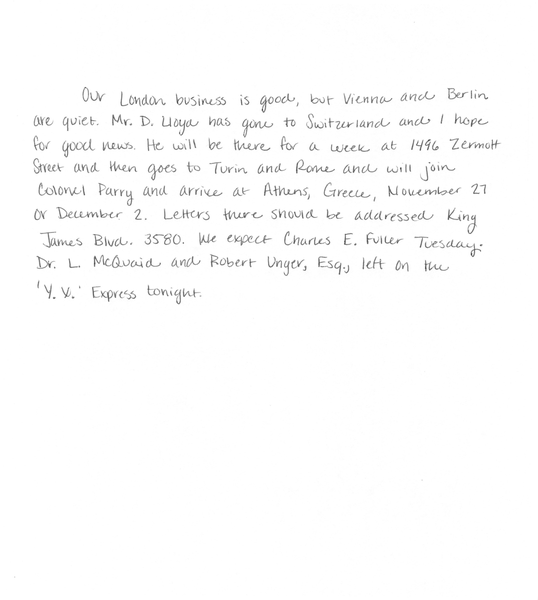 Our London business is good, but Vienna and Berlin
are quiet. Mr. D. Lloyd has gone to Switzerland and I hope
for good news. He will be there for a week at 1496 Zermott
Street and then goes to Turin and Rome and will join
Colonel Parry and arrive at Athens, Greece, November 27
or December 2. Letters there should be addressed King
James Blvd. 3580. We expect Charles E. Fuller Tuesday.
Dr. L. McQuaid and Robert Unger, Esq., left on the
'Y. X.' Express tonight.